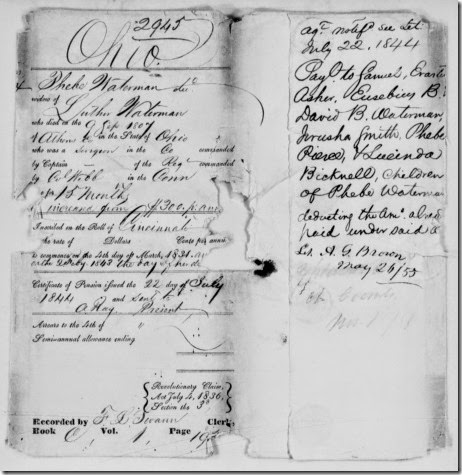 2945
Ohio.
Phebe Waterman Dec
widow of
Luther Waterman
who died on the 9 Sep 1807
of Athens Co in the State of Ohio
who was a Surgeon in the Co commanded
by Captain — of the Regt commanded
by Col Webb in the Conn
for 15 Months
increase from $300 p ann
Inscribed on the Roll of Cincinnati
the rate of Dollars Cents per annum
to commence on the 4th day of March, 1831.
1843 the day of her de
Certificate of Pension issued the 22 day of July
1844 and sent to
A Hay Present
Arrears to the 4th of
Semi-annual allowance ending
Revolutionary Claim,
Act July 4, 1836,
Section the 3d
Recorded by F. D. Swann Clerk,
Book C Vol. 1 Page
agt notifd see let
July 22, 1844
Pay to Samuel, Erastus
Asher, Eusebius B.
David B. Waterman,
Jerusha Smith, Phebe
Pierce, & Lucinda
Bicknell, children
of Phebe Waterman
deducting the amt alread
paid under said a
Let. A. G. Brown
May 26/53